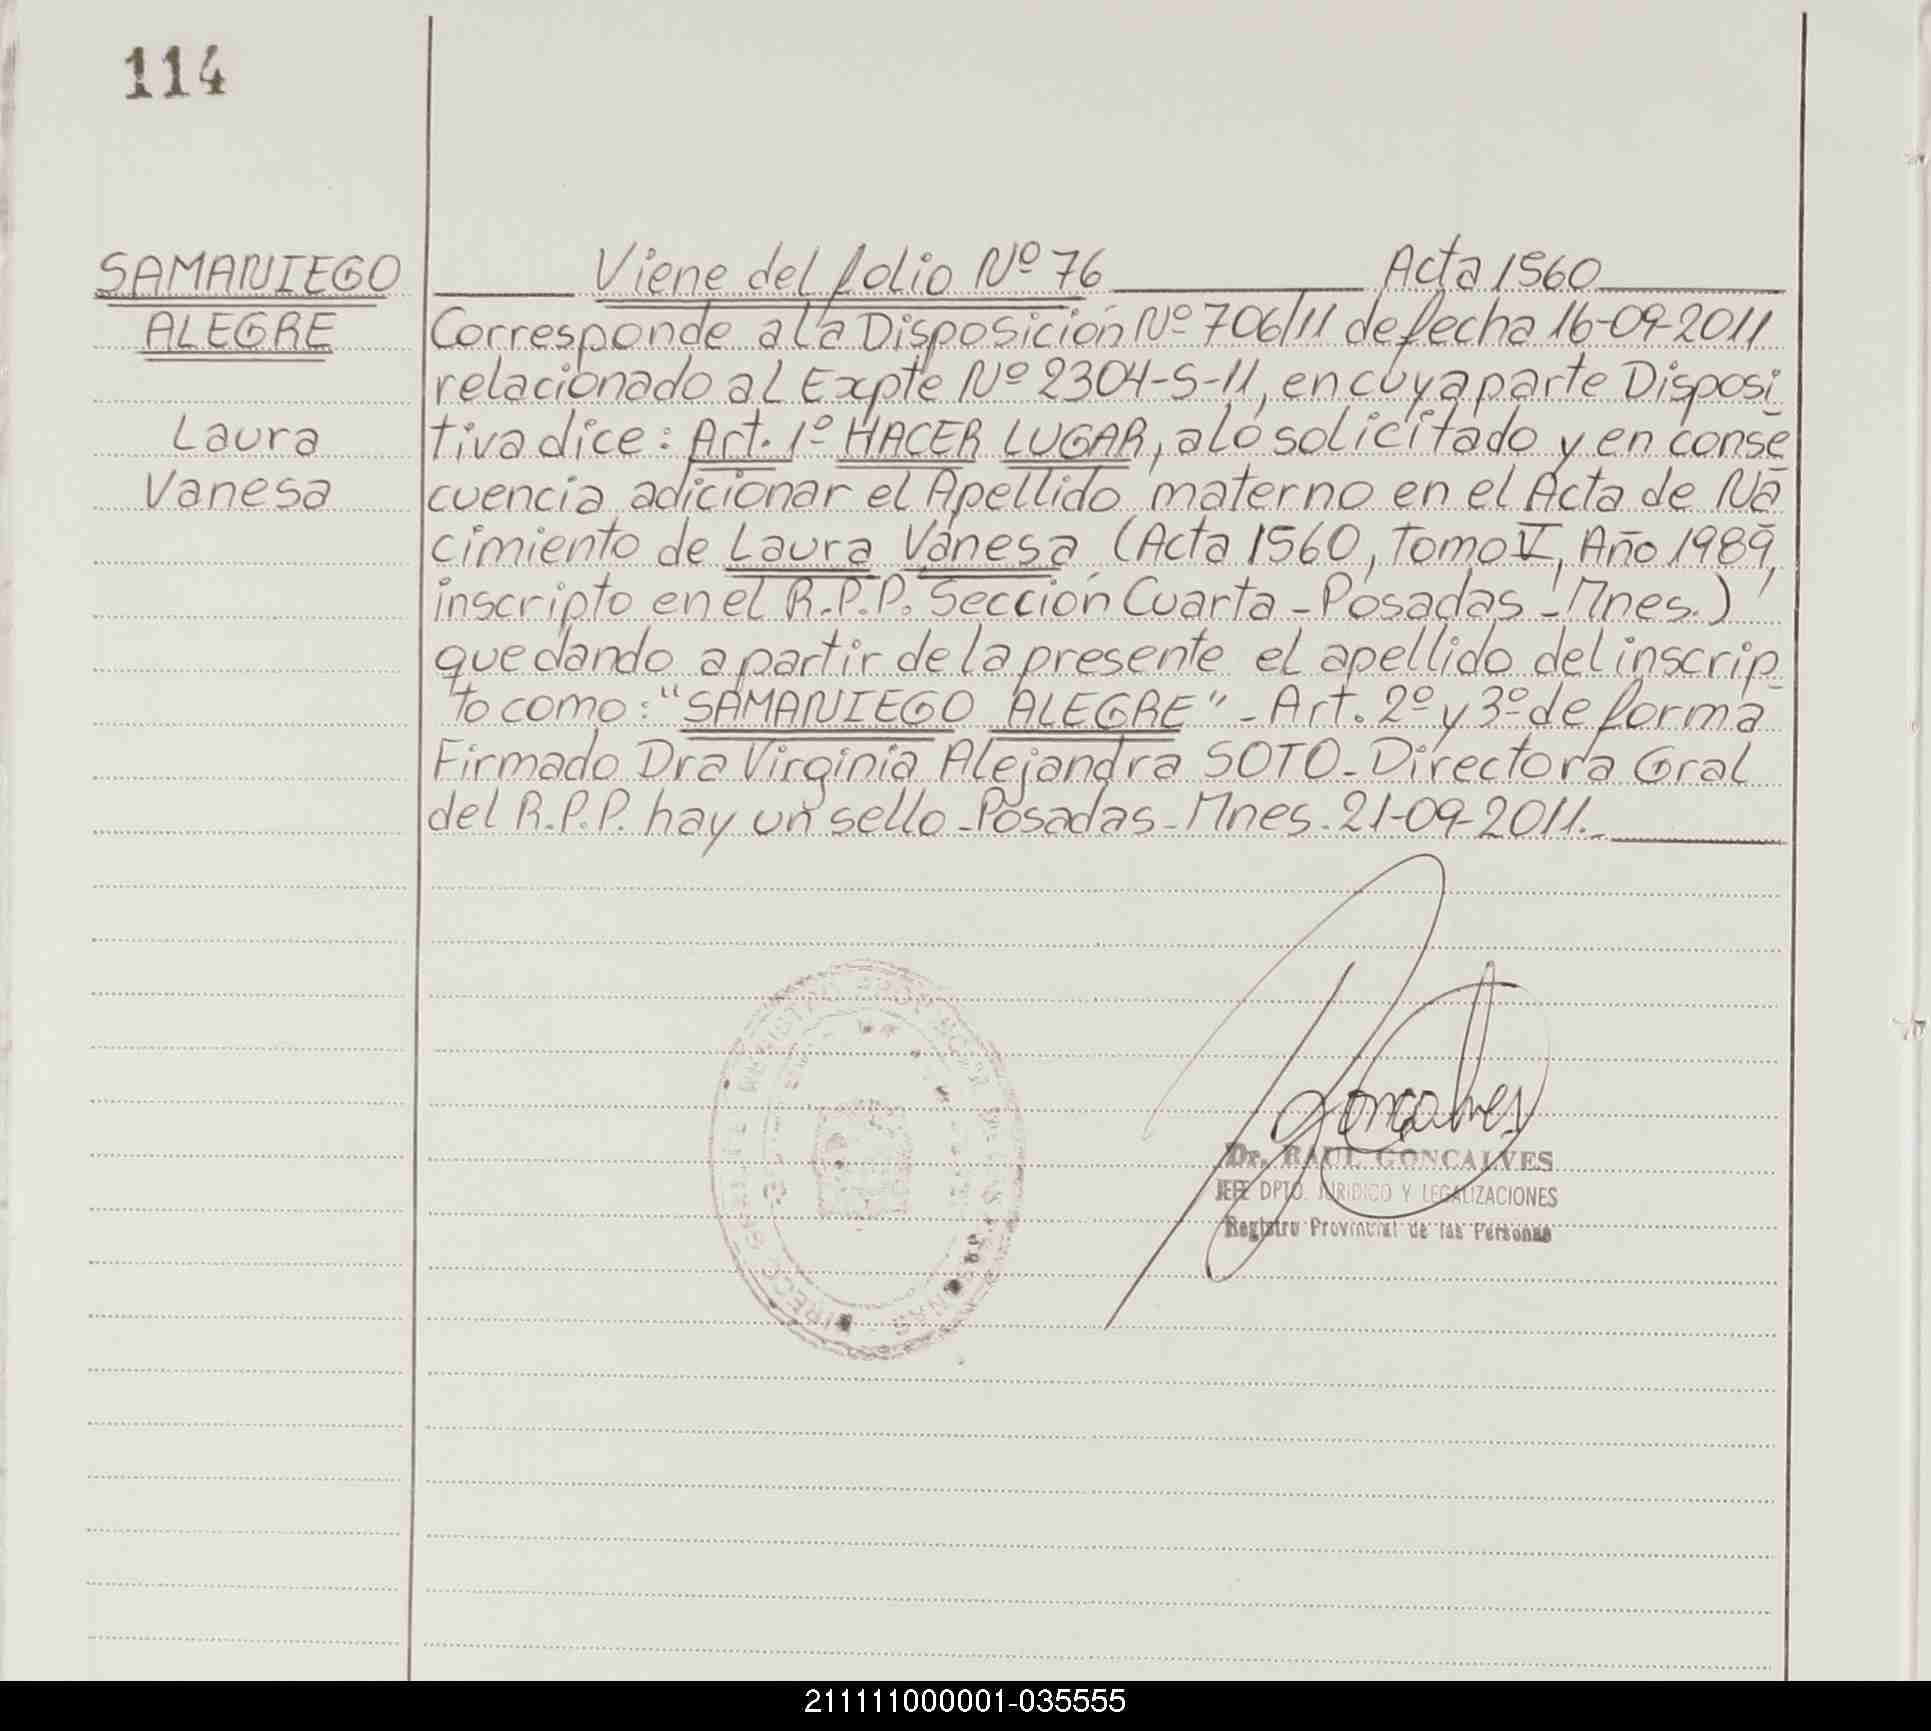 114
SAMANIEGO
ALEGRE
Laura
Vanesa
Viene del folio Nº 76 Acta 1560
Corresponde a la Disposición Nº 706/11 de fecha 16-09-2011
relacionado al Expte Nº 2304-S-11, en cuya parte Disposi
tiva dice: Art. 1º HACER LUGAR, a lo solicitado y en conse
cuencia adicionar el Apellido materno en el Acta de Na
cimiento de Laura Vanesa (Acta 1560, Tomo V, Año 1989,
inscripto en el R.P.P. Sección Cuarta - Posadas - Mnes.)
quedando a partir de la presente el apellido del inscrip
to como: "SAMANIEGO ALEGRE" - Art. 2º y 3º de forma
Firmado Dra Virginia Alejandra SOTO - Directora Gral
del R.P.P. hay un sello - Posadas - Mnes. 21-09-2011.-
Goncalves
Dr. RAUL GONCALVES
JEFE DPTO. JURIDICO Y LEGALIZACIONES
Registro Provincial de las Personas
211111000001-035555